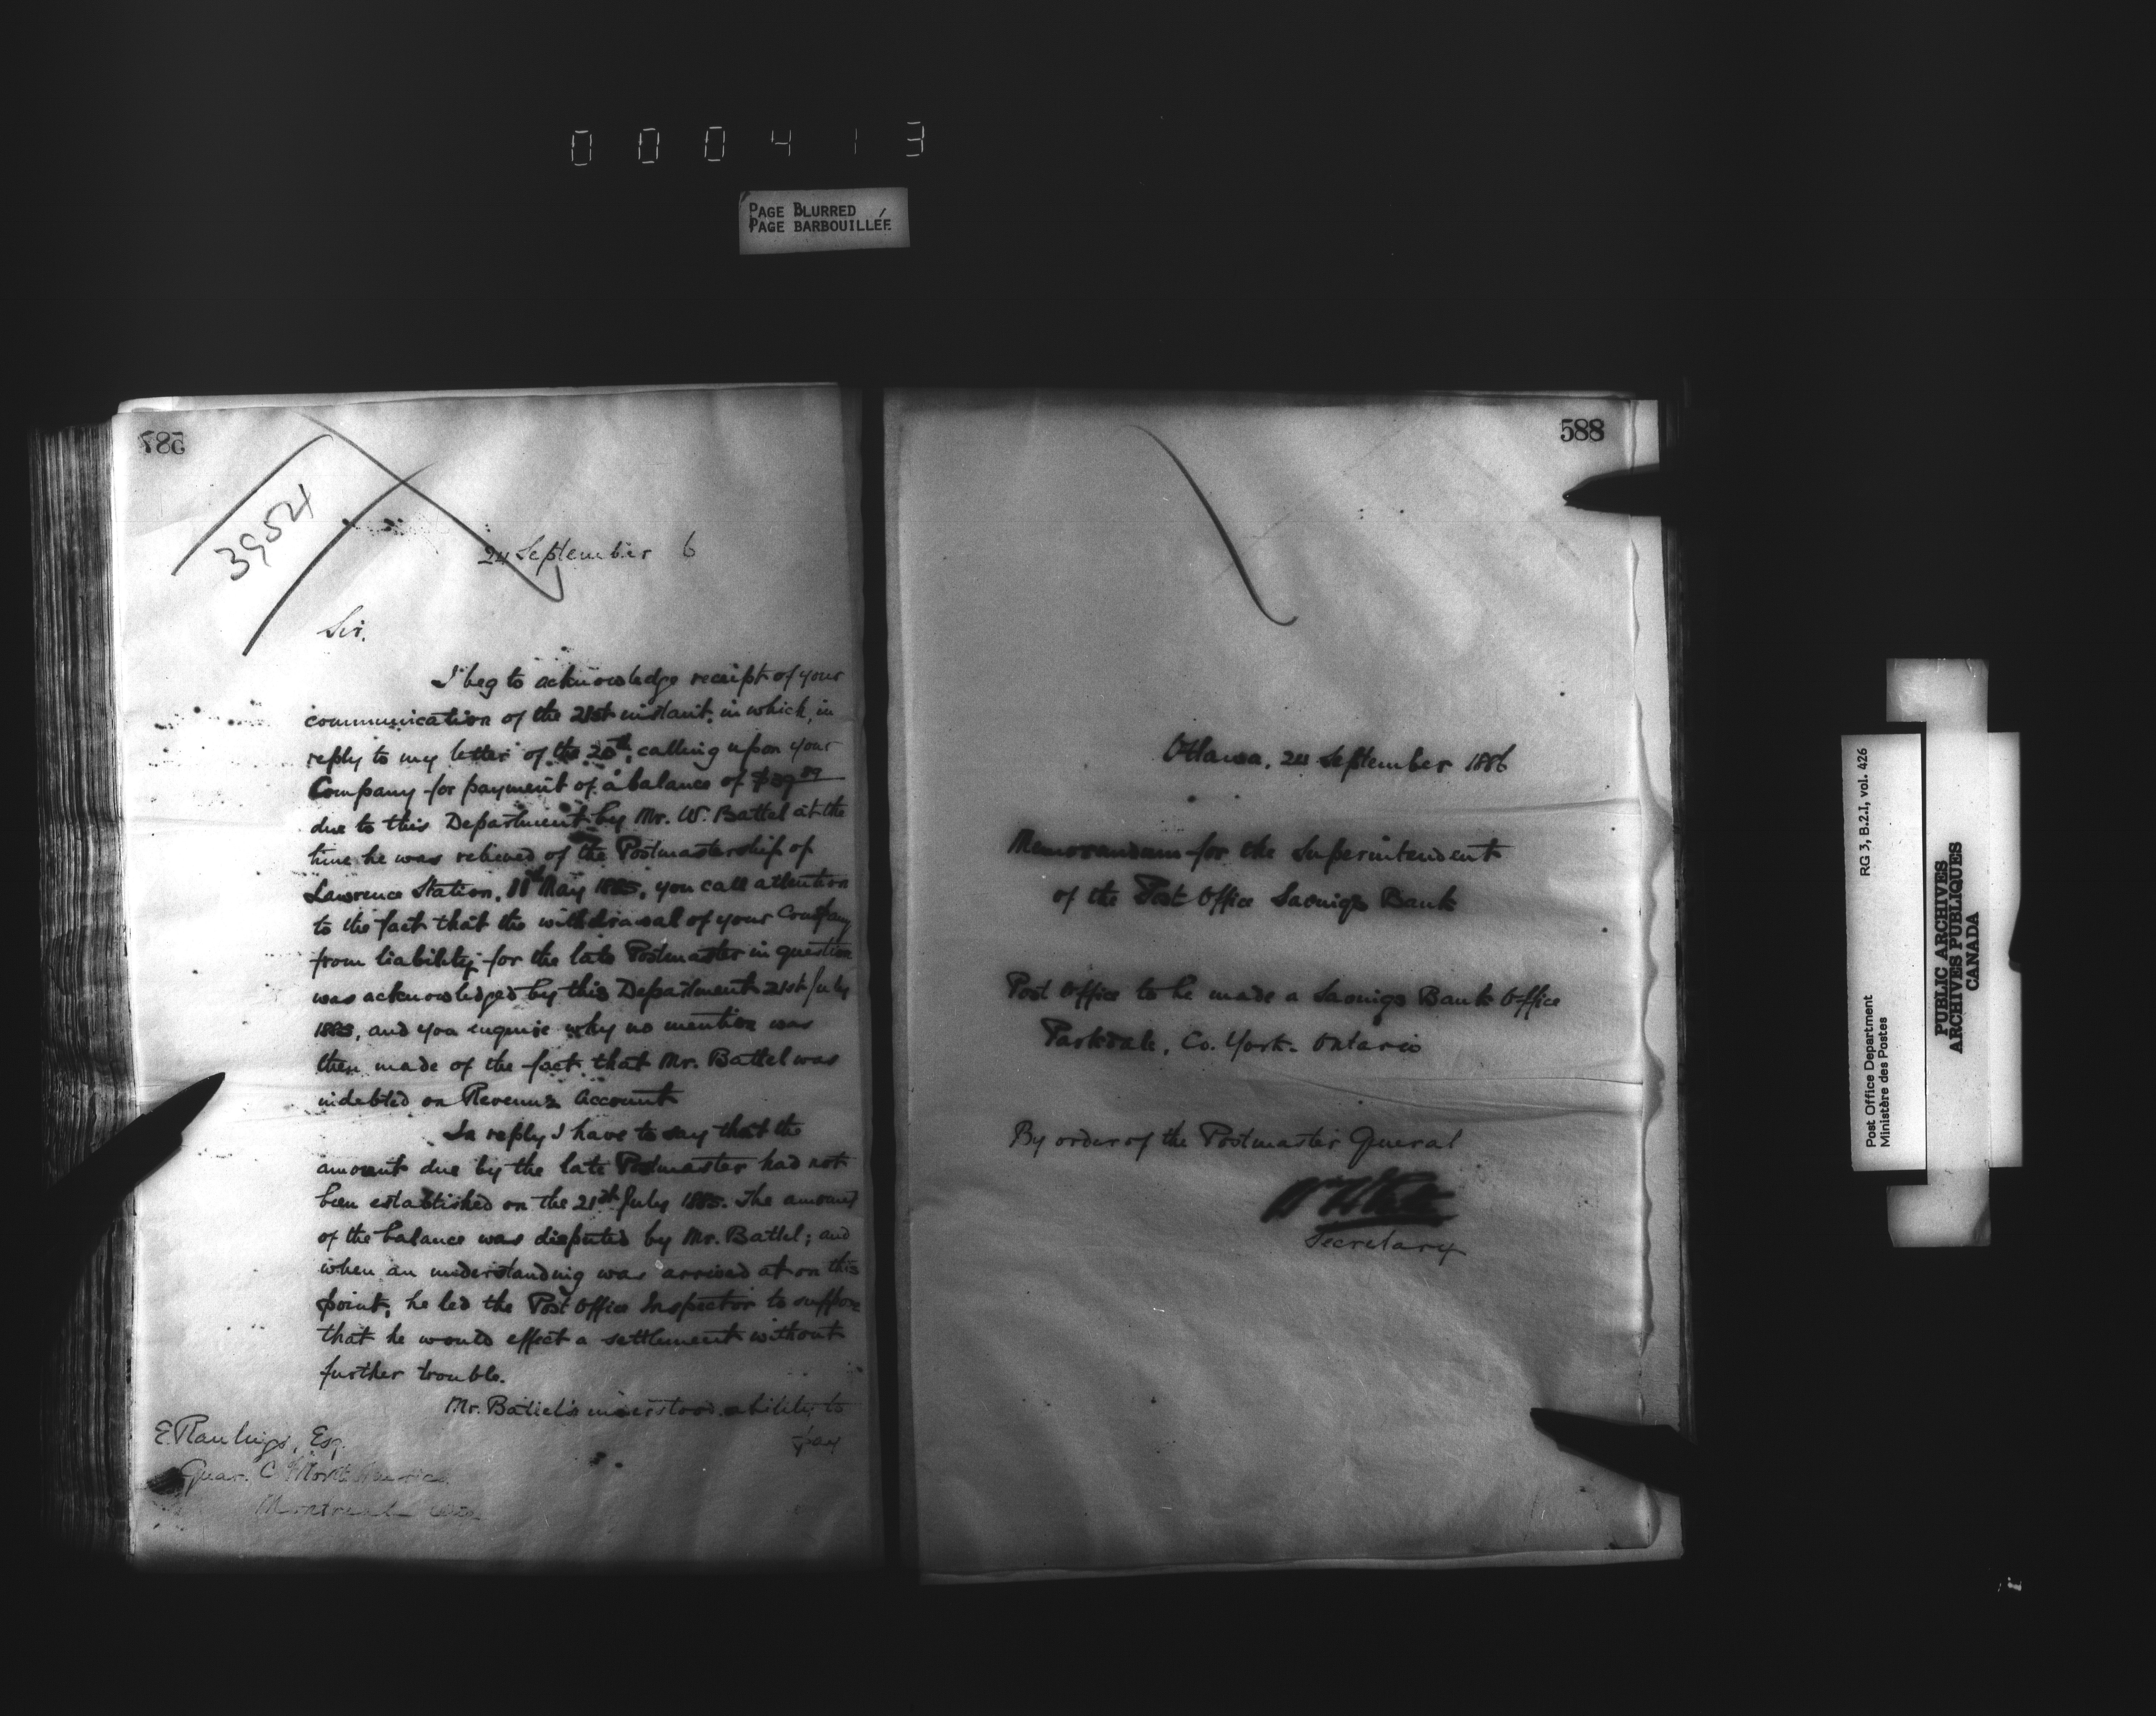 000413
PAGE BLURRED
PAGE BARBOUILLÉE
587
39521
24 September 6
Sir,
I beg to acknowledge receipt of your
communication of the 21st instant, in which, in
reply to my letter of the 20th, calling upon your
Company for payment of a balance of
due to this Department by Mr. W. Battel at the
time he was relieved of the Postmastership of
Lawrence Station, 11th May 1885, you call attention
to the fact that the withdrawal of your Company
from liability for the late Postmaster in question
was acknowledged by this Department 21st July
1885, and you enquire why no mention was
then made of the fact that Mr. Battel was
indebted on Revenue Account
In reply I have to say that the
amount due by the late Postmaster had not
been established on the 21st July 1885. The amount
of the balance was disputed by Mr. Battel; and
when an understanding was arrived at on this
point, he led the Post Office Inspector to suppose
that he would effect a settlement without
further trouble.
Mr. Battel's understood ability to
pay
E. Rawlings, Esq.
Guar. C of North America
Montreal
588
Ottawa, 24 September 1886
Memorandum for the Superintendent
of the Post Office Savings Bank
Post Office to be made a Savings Bank Office
Parkdale, Co. York. Ontario
By order of the Postmaster General
Secretary
Post Office Department RG 3, B.2.I, vol. 426
Ministère des Postes
PUBLIC ARCHIVES
ARCHIVES PUBLIQUES
CANADA